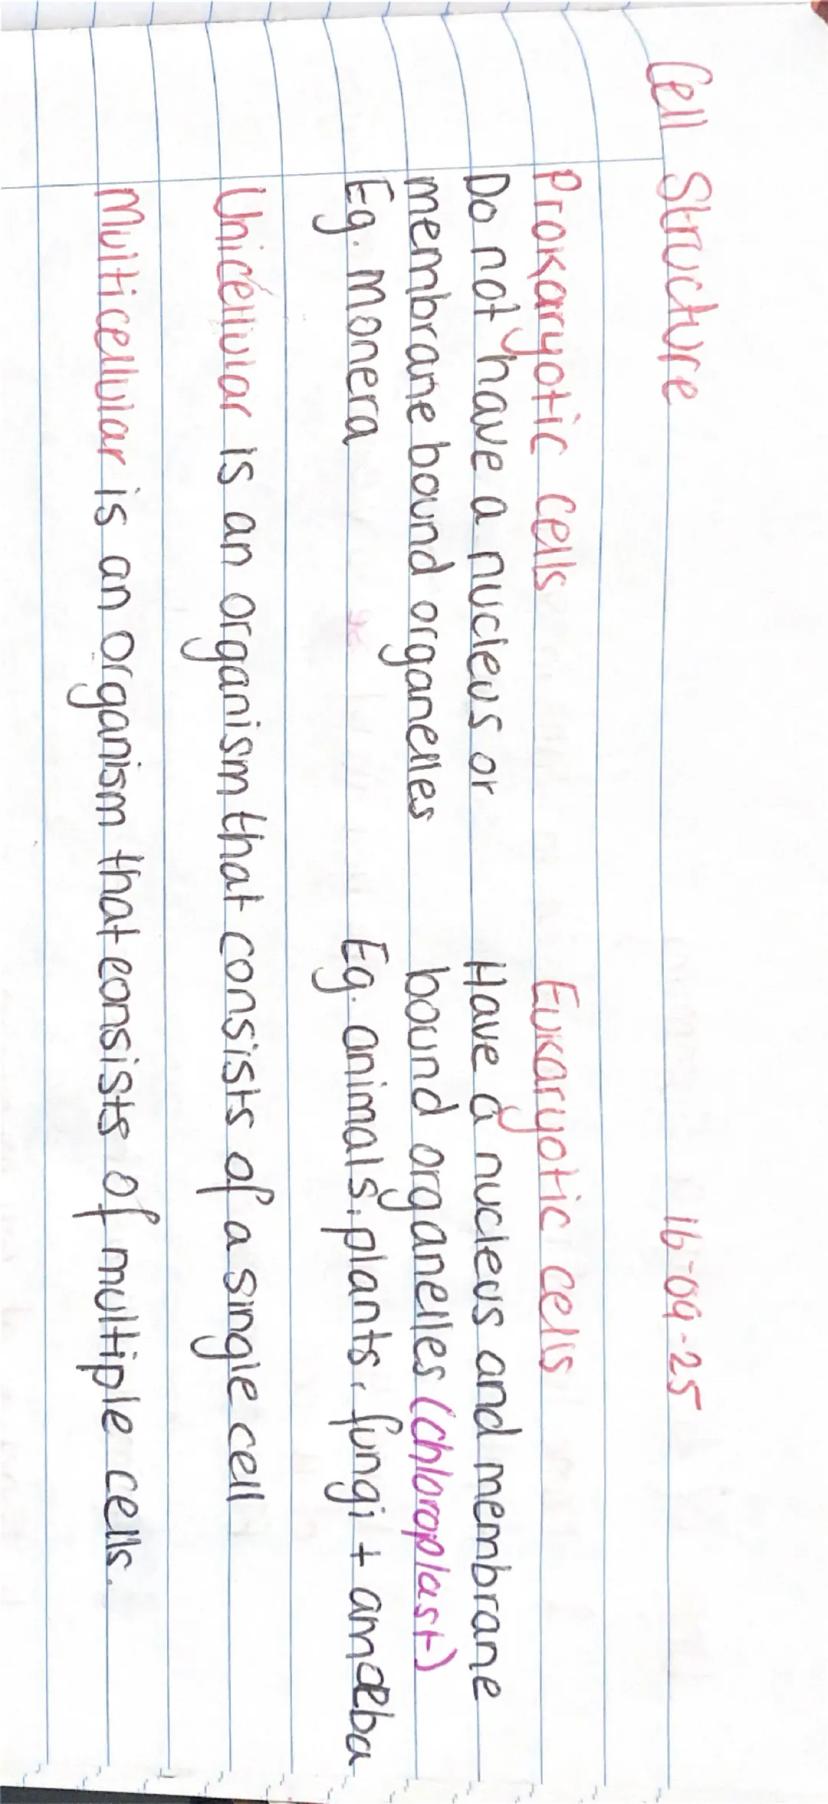 Cell Structure 16-09-25
Prokaryotic cells Eukaryotic cells
Do not have a nucleus or Have a nucleus and membrane
membrane bound organelles bound organelles (chloroplast)
Eg. monera Eg. animals, plants, fungi + amœba
Unicellular is an organism that consists of a single cell
Multicellular is an organism that consists of multiple cells.